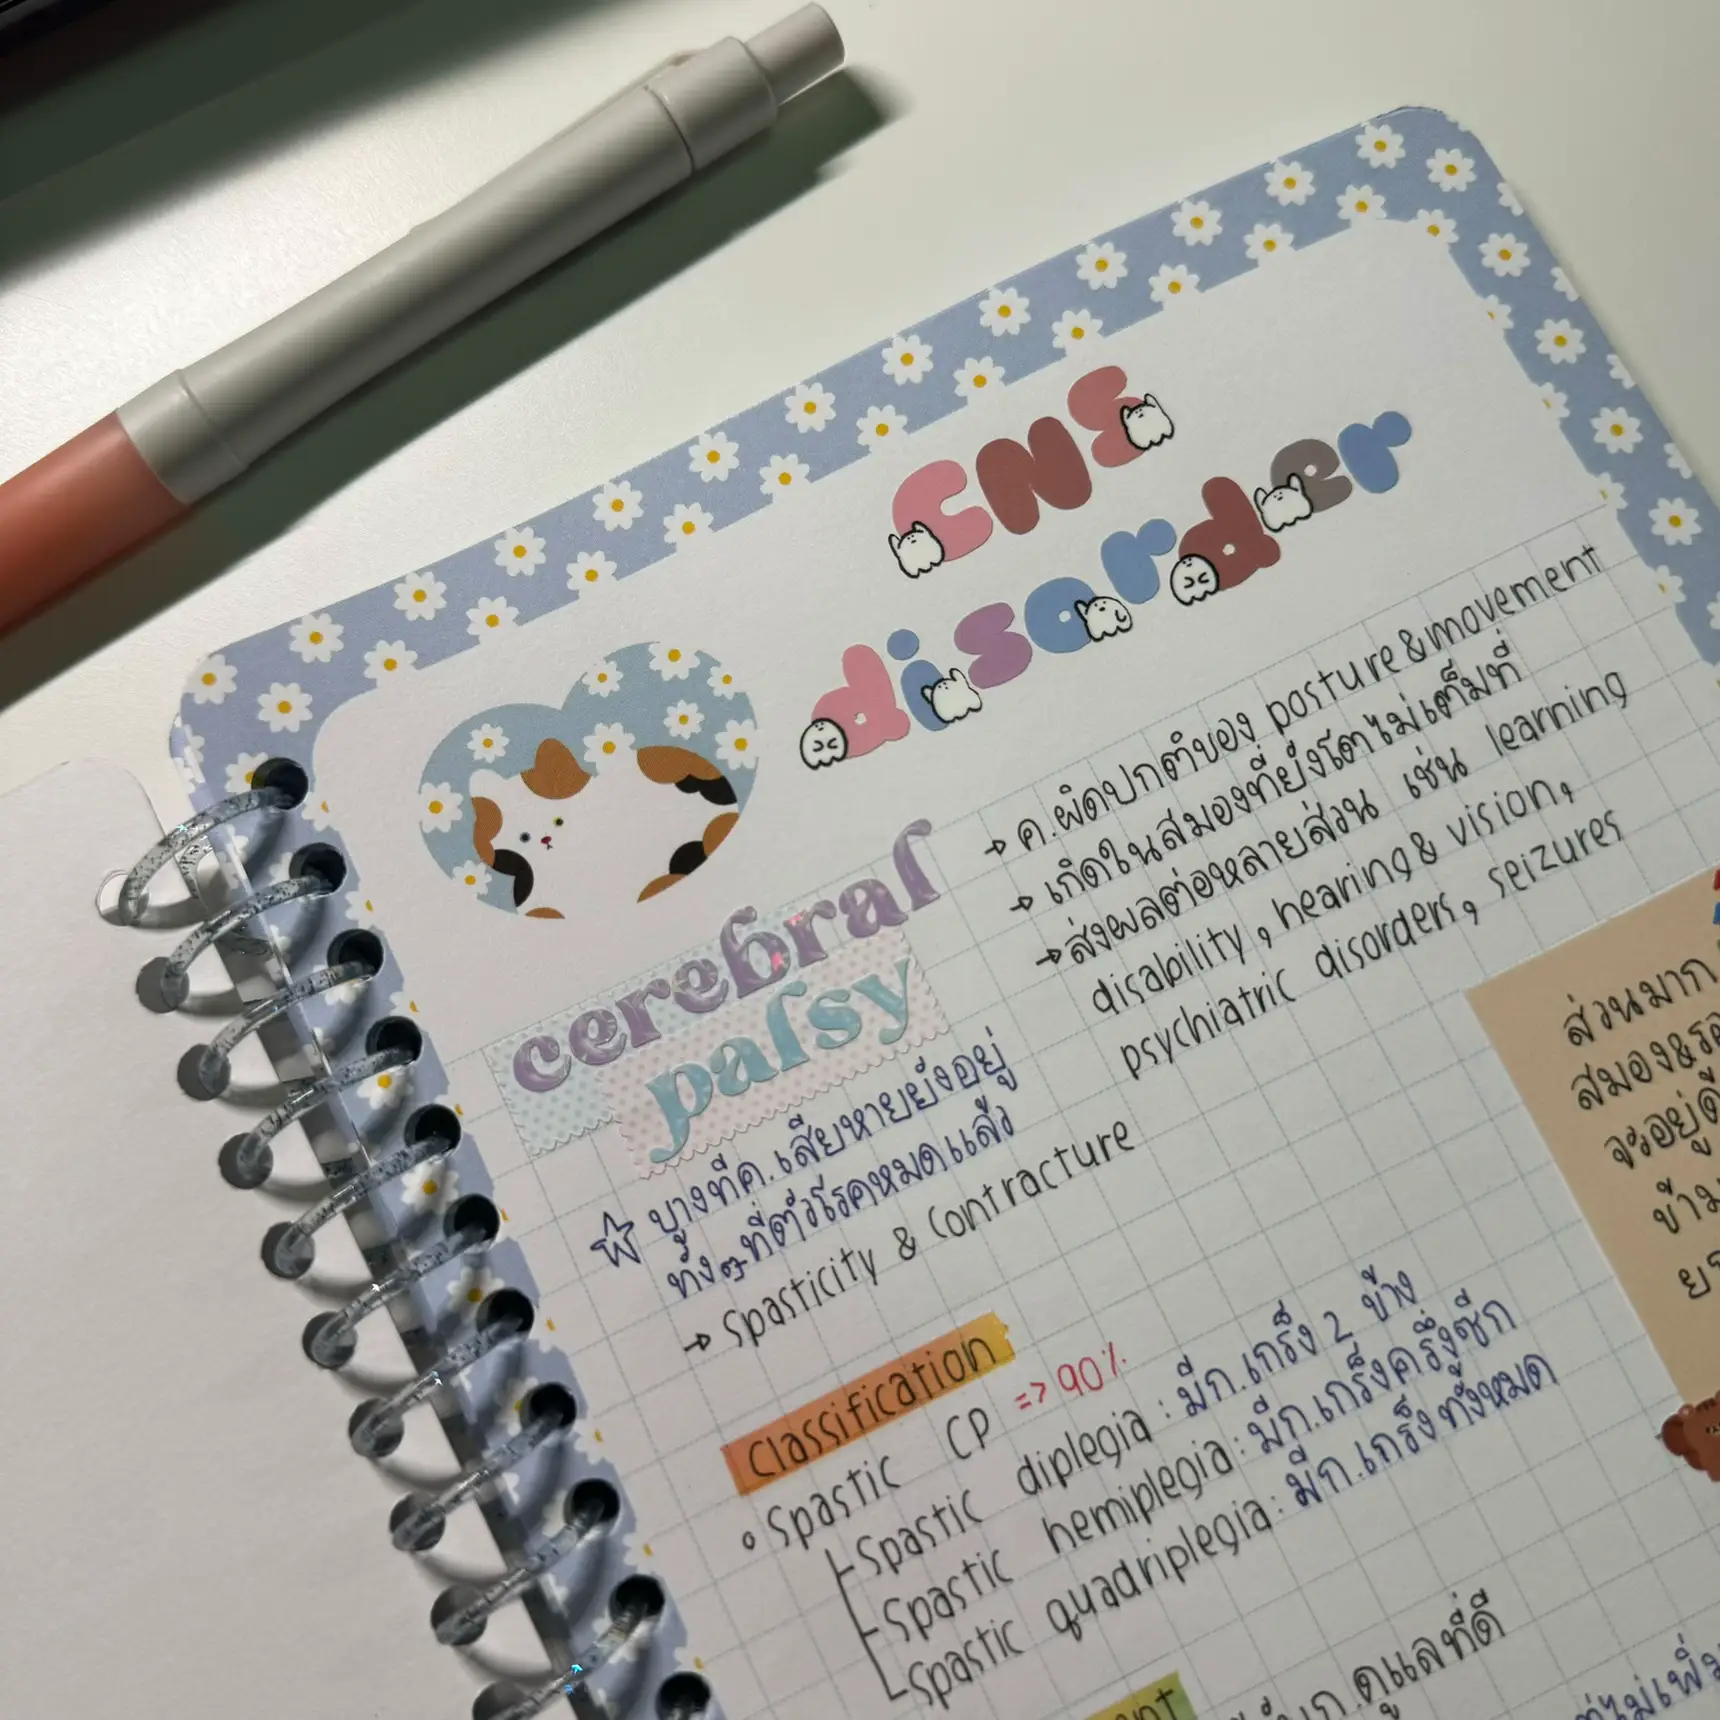 CNS
disorder
cerebral
palsy
→ ค.ผิดปกติของ posture & movement
→ เกิดในสมองที่ยังโตไม่เต็มที่
→ ส่งผลต่อหลายส่วน เช่น learning
disability, hearing & vision,
psychiatric disorders, seizures
☆ บางทีค.เสียหายยังอยู่
ทั้งๆที่ตัวโรคหมดแล้ว
→ Spasticity & Contracture
Classification
Spastic CP => 90%
Spastic diplegia : มีก.เกร็ง 2 ข้าง
Spastic hemiplegia : มีก.เกร็งครึ่งซีก
Spastic quadriplegia : มีก.เกร็งทั้งหมด
ก.ดูแลที่ดี
ส่วนมาก
สมอง&
จะอยู่